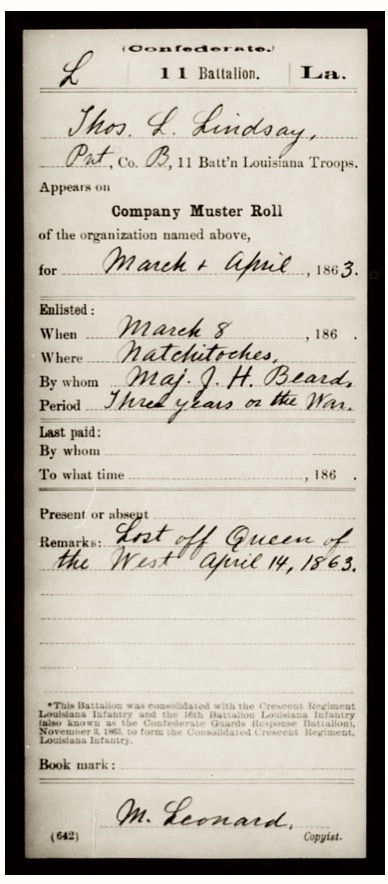 (Confederate.)
L | 11 Battalion. | La.
Thos. L. Lindsay,
Pvt, Co. B, 11 Batt'n Louisiana Troops.
Appears on
Company Muster Roll
of the organization named above,
for March & April, 1863.
Enlisted:
When March 8, 186 .
Where Natchitoches,
By whom Maj. J. H. Beard,
Period Three years or the War.
Last paid:
By whom
To what time , 186 .
Present or absent
Remarks: Lost off Queen of
the West April 14, 1863.
*This Battalion was consolidated with the Crescent Regiment
Louisiana Infantry and the 16th Battalion Louisiana Infantry
(also known as the Confederate Guards Response Battalion),
November 3, 1863, to form the Consolidated Crescent Regiment,
Louisiana Infantry.
Book mark:
M. Leonard,
(642) Copyist.